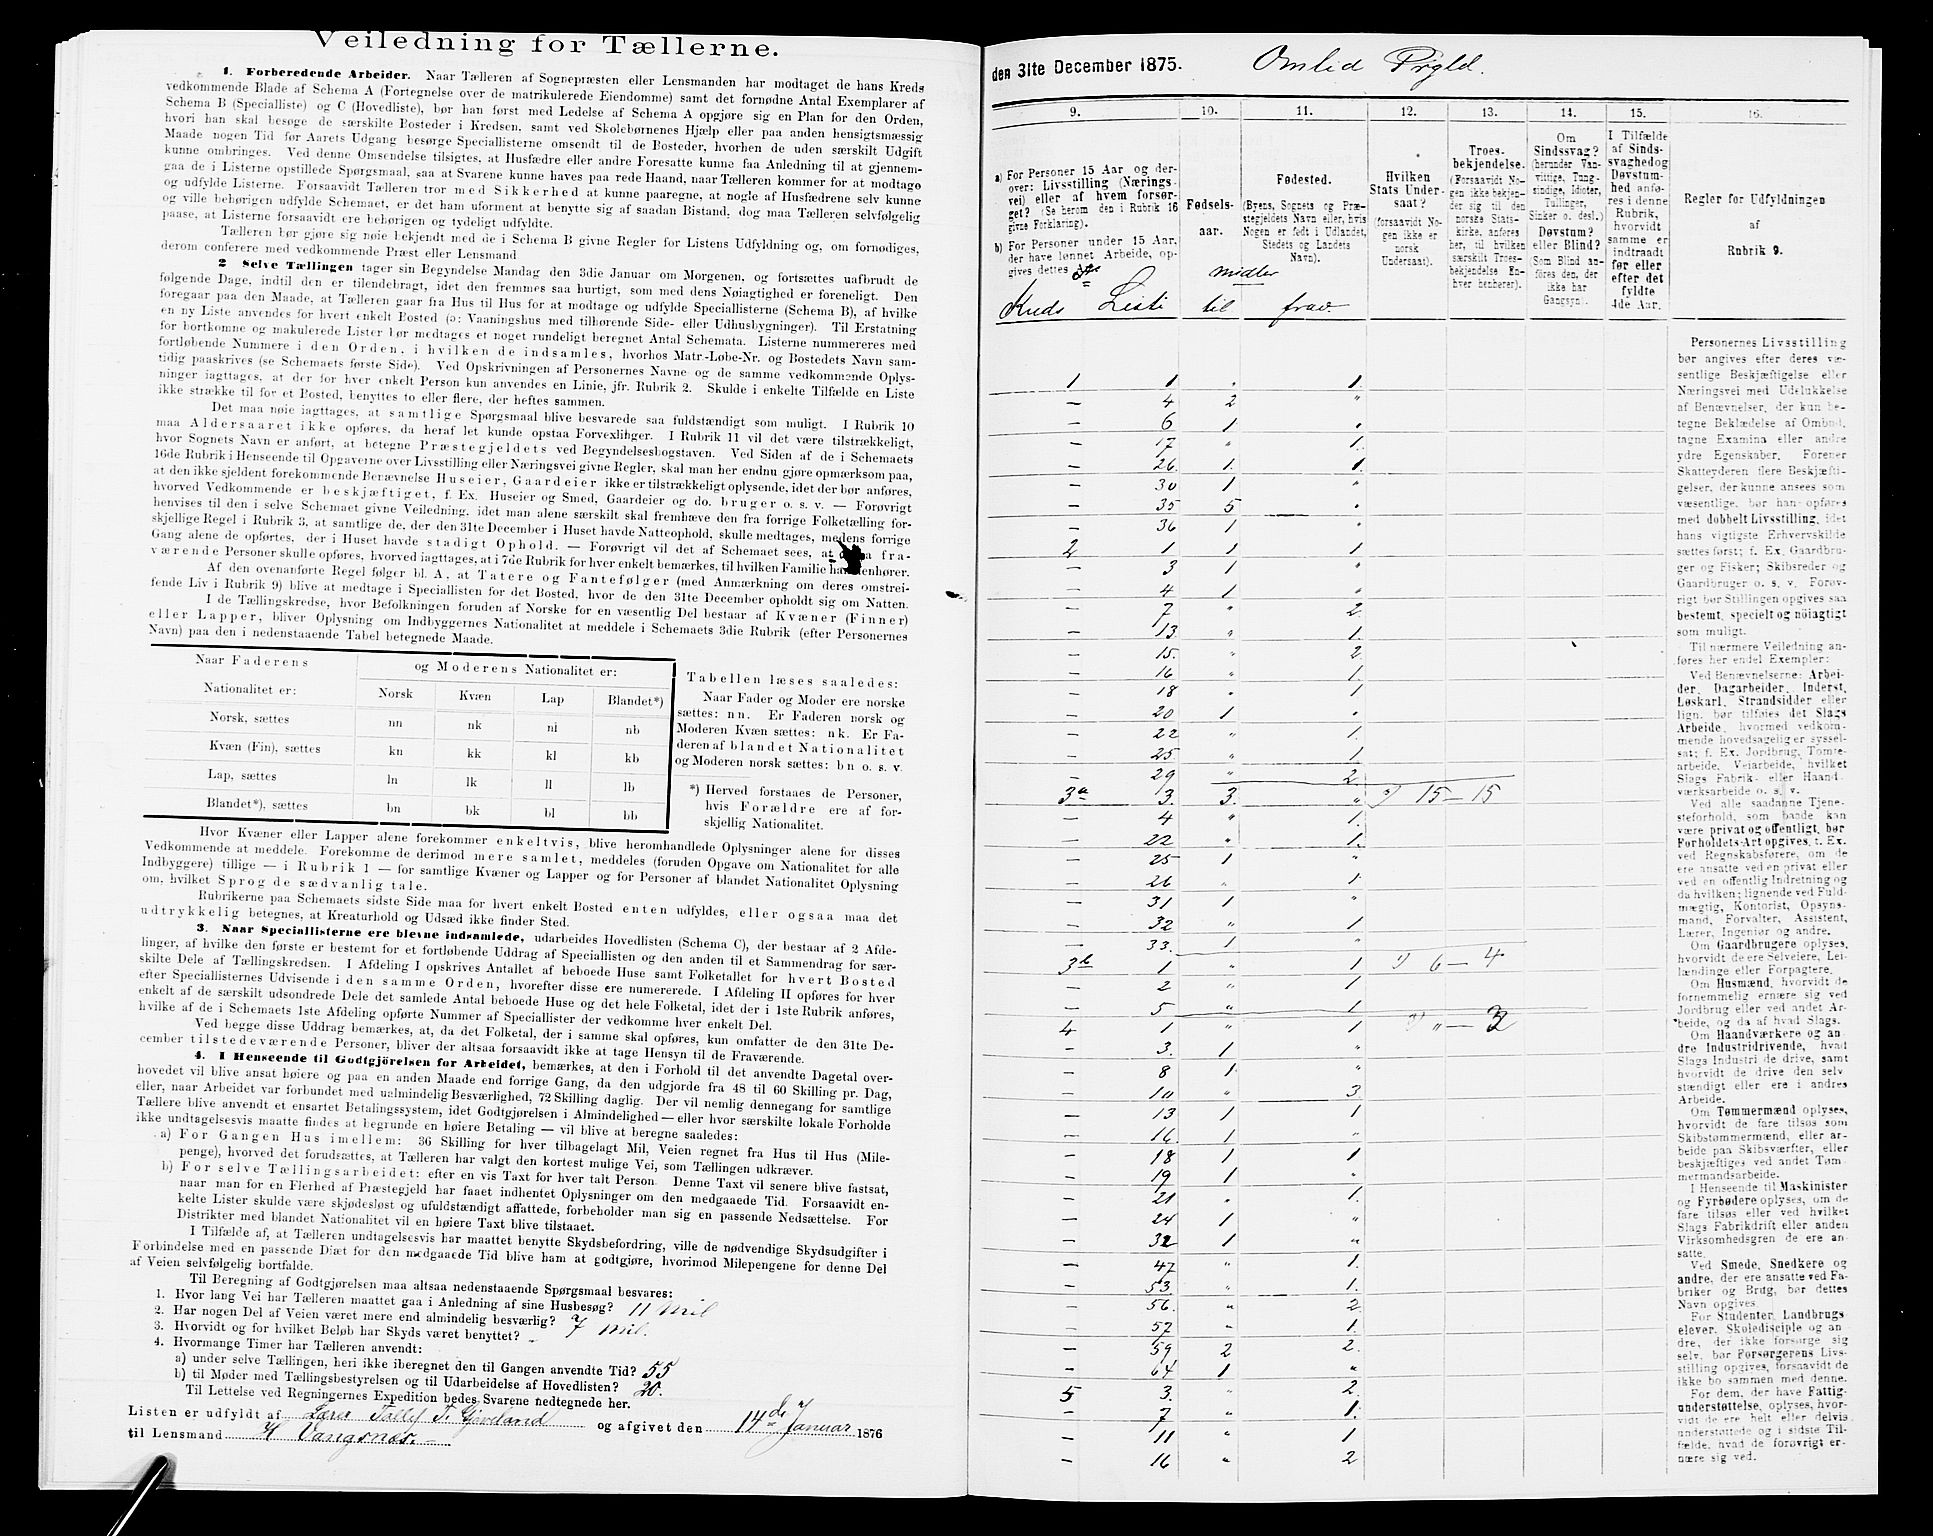 Veiledning for Tællerne.
1. Forberedende Arbeider. Naar Tælleren af Sognepræsten eller Lensmanden har modtaget de hans Kreds
vedkommende Blade af Schema A (Fortegnelse over de matrikulerede Eiendomme) samt det fornødne Antal Exemplarer af
Schema B (Specialliste) og C (Hovedliste), bør han først med Ledelse af Schema A opgjøre sig en Plan for den Orden,
hvori han skal besøge de særskilte Bosteder i Kredsen, samt ved Skolebørnenes Hjælp eller paa anden hensigtsmæssig
Maade nogen Tid før Aarets Udgang besørge Speciallisterne omsendt til de Bosteder, hvorhen de uden særskilt Udgift
kunne ombringes. Ved denne Omsendelse tilsigtes, at Husfædre eller andre Foresatte kunne faa Anledning til at gjennem-
gaa de i Listerne opstillede Spørgsmaal, saa at Svarene kunne haves paa rede Haand, naar Tælleren kommer for at modtage
og udfylde Listerne. Forsaavidt Tælleren tror med Sikkerhed at kunne paaregne, at nogle af Husfædrene selv kunne
og ville behørigen udfylde Schemaet, er det ham uforment at benytte sig af saadan Bistand, dog maa Tælleren selvfølgelig
paase, at Listerne forsaavidt ere behørigen og tydeligt udfyldte.
Tælleren bør gjøre sig nøie bekjendt med de i Schema B givne Regler for Listens Udfyldning og, om fornødiges,
derom conferere med vedkommende Præst eller Lensmand.
2 Selve Tællingen tager sin Begyndelse Mandag den 3die Januar om Morgenen, og fortsættes uafbrudt de
følgende Dage, indtil den er tilendebragt, idet den fremmes saa hurtigt, som med dens Nøiagtighed er foreneligt. Den
foregaar paa den Maade, at Tælleren gaar fra Hus til Hus for at modtage og udfylde Speciallisterne (Schema B), af hvilke
en ny Liste anvendes for hvert enkelt Bosted (ɔ: Vaaningshus med tilhørende Side- eller Udhusbygninger). Til Erstatning
for bortkomne og makulerede Lister bør medtages et noget rundeligt beregnet Antal Schemata. Listerne nummereres med
fortløbende Nummere i den Orden, i hvilken de indsamles, hvorhos Matr.-Løbe-Nr. og Bostedets Navn sam-
tidig paaskrives (se Schemaets første Side). Ved Opskrivningen af Personernes Navne og de samme vedkommende Oplys-
ninger iagttages, at der for hver enkelt Person kun anvendes en Linie, jfr. Rubrik 2. Skulde i enkelte Tilfælde en Liste
ikke strække til for et Bosted, benyttes to eller flere, der heftes sammen.
Det maa nøie iagttages, at samtlige Spørgsmaal blive besvarede saa fuldstændigt som muligt. I Rubrik 10
maa Aldersaaret ikke opføres, da heraf let kunde opstaa Forvexlinger. I Rubrik 11 vil det være tilstrækkeligt,
hvor Sognets Navn er anført, at betegne Præstegjeldets ved Begyndelsesbogstaven. Ved Siden af de i Schemaets
16de Rubrik i Henseende til Opgaverne over Livsstilling eller Næringsvei givne Regler, skal man her endnu gjøre opmærksom paa,
at den ikke sjeldent forekommende Benævnelse Huseier, Gaardeier ikke er tilstrækkeligt oplysende, idet der bør anføres,
hvorved Vedkommende er beskjæftiget, f. Ex. Huseier og Smed, Gaardeier og do. bruger o. s. v. — Forøvrigt
henvises til den i selve Schemaet givne Veiledning, idet man alene særskilt skal fremhæve den fra forrige Folketælling for-
skjellige Regel i Rubrik 3, at samtlige de, der den 31te December i Huset havde Natteophold, skulle medtages, medens forrige
Gang alene de opførtes, der i Huset havde stadigt Ophold. — Forøvrigt vil det af Schemaet sees, at fra-
værende Personer skulle opføres, hvorved iagttages, at i 7de Rubrik for hver enkelt bemærkes, til hvilken Familie han henhører.
Af den ovenanførte Regel følger bl. A., at Tatere og Fantefølger (med Anmærkning om deres omstrei-
fende Liv i Rubrik 9) blive at medtage i Speciallisten for det Bosted, hvor de den 31te December opholdt sig om Natten.
I de Tællingskredse, hvor Befolkningen foruden af Norske for en væsentlig Del bestaar af Kvæner (Finner)
eller Lapper, bliver Oplysning om Indbyggernes Nationalitet at meddele i Schemaets 3die Rubrik (efter Personernes
Navn) paa den i nedenstaaende Tabel betegnede Maade.
Naar Faderens og Moderens Nationalitet er:
Nationalitet er: Norsk Kvæn Lap Blandet*)
Norsk, sættes nn nk nl nb
Kvæn (Fin), sættes kn kk kl kb
Lap, sættes ln lk ll lb
Blandet*), sættes bn bk bl bb
Tabellen læses saaledes:
Naar Fader og Moder ere norske
sættes: nn. Er Faderen norsk og
Moderen Kvæn sættes: nk. Er Fa-
deren af blandet Nationalitet
og Moderen norsk sættes: bn o. s. v.
*) Herved forstaaes de Personer,
hvis Forældre ere af for-
skjellig Nationalitet.
Hvor Kvæner eller Lapper alene forekommer enkeltvis, blive heromhandlede Oplysninger alene for disses
Vedkommende at meddele. Forekomme de derimod mere samlet, meddeles (foruden Opgave om Nationalitet for alle
Indbyggere) tillige — i Rubrik 1 — for samtlige Kvæner og Lapper og for Personer af blandet Nationalitet Oplysning
om, hvilket Sprog de sædvanlig tale.
Rubrikerne paa Schemaets sidste Side maa for hvert enkelt Bosted enten udfyldes, eller ogsaa maa det
udtrykkelig betegnes, at Kreaturhold og Udsæd ikke finder Sted.
3. Naar Speciallisterne ere blevne indsamlede, udarbeides Hovedlisten (Schema C), der bestaar af 2 Afde-
linger, af hvilke den første er bestemt for et fortløbende Uddrag af Speciallisten og den anden til et Sammendrag for sær-
skilte Dele af Tællingskredsen. I Afdeling I opskrives Antallet af beboede Huse samt Folketallet for hvert Bosted
efter Speciallisternes Udvisende i den samme Orden, hvorefter disse ere numererede. I Afdeling II opføres for hver
enkelt af de særskilt udsondrede Dele det samlede Antal beboede Huse og det hele Folketal, idet der i 1ste Rubrik anføres,
hvilke af de i Schemaets 1ste Afdeling opførte Nummer af Speciallister der vedkomme hver enkelt Del.
Ved begge disse Uddrag bemærkes, at, da det Folketal, der i samme skal opføres, kun omfatter de den 31te De-
cember tilstedeværende Personer, bliver der altsaa forsaavidt ikke at tage Hensyn til de Fraværende.
4. I Henseende til Godtgjørelsen for Arbeidet, bemærkes, at den i Forhold til det anvendte Dagetal over-
hovedet vil blive ansat høiere og paa en anden Maade end forrige Gang, da den udgjorde fra 48 til 60 Skilling pr. Dag,
eller, naar Arbeidet var forbundet med ualmindelig Besværlighed, 72 Skilling daglig. Der vil nemlig dennegang for samtlige
Tællere blive anvendt et ensartet Betalingssystem, idet Godtgjørelsen i Almindelighed — eller hvor særskilte lokale Forholde
ikke undtagelsesvis maatte findes at begrunde en høiere Betaling — vil blive at beregne saaledes:
a) For Gangen Hus imellem: 36 Skilling for hver tilbagelagt Mil, Veien regnet fra Hus til Hus (Mile-
penge), hvorved det forudsættes, at Tælleren har valgt den kortest mulige Vei, som Tællingen udkræver.
b) For selve Tællingsarbeidet: efter en vis Taxt for hver talt Person. Denne Taxt vil senere blive fastsat,
naar man for en Flerhed af Præstegjeld har faaet indhentet Oplysninger om den medgaaede Tid. Forsaavidt en-
kelte Lister skulde være skjødesløst og ufuldstændigt affattede, forbeholder man sig en passende Nedsættelse. For
Distrikter med blandet Nationalitet vil en høiere Taxt blive tilstaaet.
I Tilfælde af, at Tælleren undtagelsesvis har maattet benytte Skydsbefordring, ville de nødvendige Skydsudgifter i
Forbindelse med en passende Diæt for den medgaaede Tid blive ham at godtgjøre, hvorimod Milepengene for denne Del
af Veien selvfølgelig bortfalde.
Til Beregning af Godtgjørelsen maa altsaa nedenstaaende Spørgsmaal besvares:
1. Hvor lang Vei har Tælleren maattet gaa i Anledning af sine Husbesøg? 11 Mil
2. Har nogen Del af Veien været mere end almindelig besværlig? 7 Mil.
3. Hvorvidt og for hvilket Beløb har Skyds været benyttet? "
4. Hvormange Timer har Tælleren anvendt:
a) under selve Tællingen, heri ikke iberegnet den til Gangen anvendte Tid? 55
b) til Møder med Tællingsbestyrelsen og til Udarbeidelse af Hovedlisten? 20.
Til Lettelse ved Regningernes Expedition bedes Svarene nedtegnede her.
Listen er udfyldt af Lærer Tallef T. Gjøveland og afgivet den 14de Januar 1876
til Lensmand Vangsnes.
den 31te December 1875. Omlid Prgld.
9. 10. 11. 12. 13. 14. 15. 16.
a) For Personer 15 Aar og der-
over: Livsstilling (Nærings-
vei) eller af hvem forsør-
get? (Se herom den i Rubrik 16
givne Forklaring).
b) For Personer under 15 Aar,
der have lønnet Arbeide, op-
gives dettes Art.
Fødsels-
aar.
Fødested.
(Byens, Sognets og Præ-
stegjeldets Navn eller, hvis
Nogen er født i Udlandet,
Stedets og Landets
Navn).
Hvilken
Stats Under-
saat?
(forsaavidt No-
gen ikke er
norsk
Undersaat).
Troes-
bekjendelse.
(Forsaavidt No-
gen ikke bekjen-
der sig til den
norske Stats-
kirke, anføres
her, til hvilken
særskilt Troes-
bekjendelse En-
hver henhører).
Om
Sindssvag?
(herunder Van-
vittige, Tung-
sindige, Idioter,
Tullinger,
Sinker o. desl.)
Døvstum?
eller Blind?
(Som Blind an-
føres den, der
ikke har
Gangsyn).
I Tilfælde
af Sinds-
svaghed og
Døvstum-
hed anfø-
res i denne
Rubrik,
hvorvidt
samme er
indtraadt
før eller
efter det
fyldte
4de Aar.
Regler for Udfyldningen
af
Rubrik 9.
midler
Kreds Liste til frav.
1 1 " 1.
— 4 2 "
— 6 1 "
— 17 " 1.
— 26. 1. 1.
— 30 1 "
— 35 5 "
— 36 1 "
2 1 1 1
— 3 1 "
— 4 1 "
— 7 " 2
— 13. " 1.
— 15. " 2.
— 16 " 1.
— 18 " 1
— 20 1 "
— 22 " 1.
— 25. " 1
— 29 " 2
3a 3. 3. " T 15 — 15
— 4 " 1.
— 22 " 1.
— 25 1 "
— 26 " 1.
— 31 1 "
— 32 " 1
— 33. 1 "
3b 1 " 1 T 6 — 4
— 2 " 1
— 5 " 1
4 1 " 1 T " — 3
— 3. 1 "
— 8 1 "
— 10 " 3
— 13 1 1
— 16. 1 "
— 18 1 1
— 19 1 "
— 21 " 1.
— 24 1 "
— 32 1 "
— 47 " 1.
— 53. " 1.
— 56. " 2.
— 57 " 1.
— 59 2 2.
— 64 1 "
5 3. " 2.
— 7 " 1.
— 11 " 1
— 16 " 2
Personernes Livsstilling
bør angives efter deres væ-
sentlige Beskjæftigelse eller
Næringsvei med Udelukkelse
af Benævnelser, der kun be-
tegne Beklædelse af Ombud,
tagne Examina eller andre
ydre Egenskaber. Forener
Skatteyderen flere Beskjæfti-
gelser, der kunne ansees som
væsentlige, bør han opføres
med dobbelt Livsstilling, idet
hans vigtigste Erhvervskilde
sættes først; f. Ex. Gaardbru-
ger og Fisker; Skibsreder og
Gaardbruger o. s. v. Forøv-
rigt bør Stillingen opgives saa
bestemt, specielt og nøiagtigt
som muligt.
Til nærmere Veiledning an-
føres her endel Exempler:
Ved Benævnelserne: Arbei-
der, Dagarbeider, Inderst,
Løskarl, Strandsidder eller
lign. bør tilføies det Slags
Arbeide, hvormed vedkom-
mende hovedsagelig er syssel-
sat; f. Ex. Jordbrug, Tomte-
arbeide, Veiarbeide, hvilket
Slags Fabrik- eller Haand-
værksarbeide o. s. v.
Ved alle saadanne Tjene-
steforhold, som baade kan
være privat og offentligt, bør
Forholdets Art opgives, f. Ex.
ved Regnskabsførere, om de
ere ansatte ved en privat eller
ved en offentlig Indretning og
da hvilken; lignende ved Fuld-
mægtig, Kontorist, Opsyns-
mand, Forvalter, Assistent,
Lærer, Ingeniør og andre.
Om Gaardbrugere oplyses,
hvorvidt de ere Selveiere, Lei-
lændinge eller Forpagtere.
Om Husmænd, hvorvidt de
fornemmelig ernære sig ved
Jordbrug eller ved andet Ar-
beide, og da af hvad Slags.
Om Haandværkere og an-
dre Industridrivende, hvad
Slags Industri de drive, samt
hvorvidt de drive den selv-
stændigt eller ere i andres
Arbeide.
Om Tømmermænd oplyses,
hvorvidt de fare tilsøs som
Skibstømmermænd, eller ar-
beide paa Skibsværfter, eller
beskjæftiges ved andet Tøm-
mermandsarbeide.
I Henseende til Maskinister
og Fyrbødere oplyses, om de
fare tilsøs eller ved hvilket
Slags Fabrikdrift eller anden
Virksomhedsgren de ere an-
satte.
Ved Smede, Snedkere og
andre, der ere ansatte ved Fa-
briker og Brug, bør dettes
Navn opgives.
For Studenter, Landbrugs-
elever, Skoledisciple og an-
dre, der ikke forsørge sig
selv, bør Forsørgerens Livs-
stilling opgives, forsaavidt de
ikke bo sammen med denne.
For dem, der have Fattig-
understøttelse, oplyses, hvor-
vidt de ere helt eller delvis
understøttede og i sidste Til-
fælde, hvad de forøvrigt er-
nære sig ved.